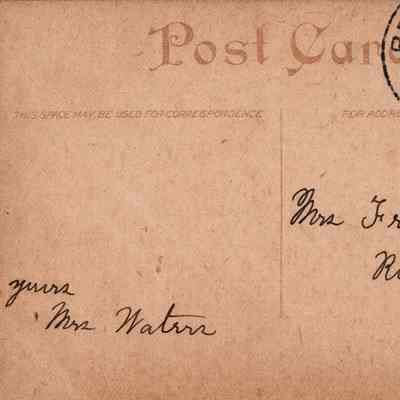 Post Car
THIS SPACE MAY BE USED FOR CORRESPONDENCE
FOR ADDR
Mrs Fr
R
yours
Mrs Waters